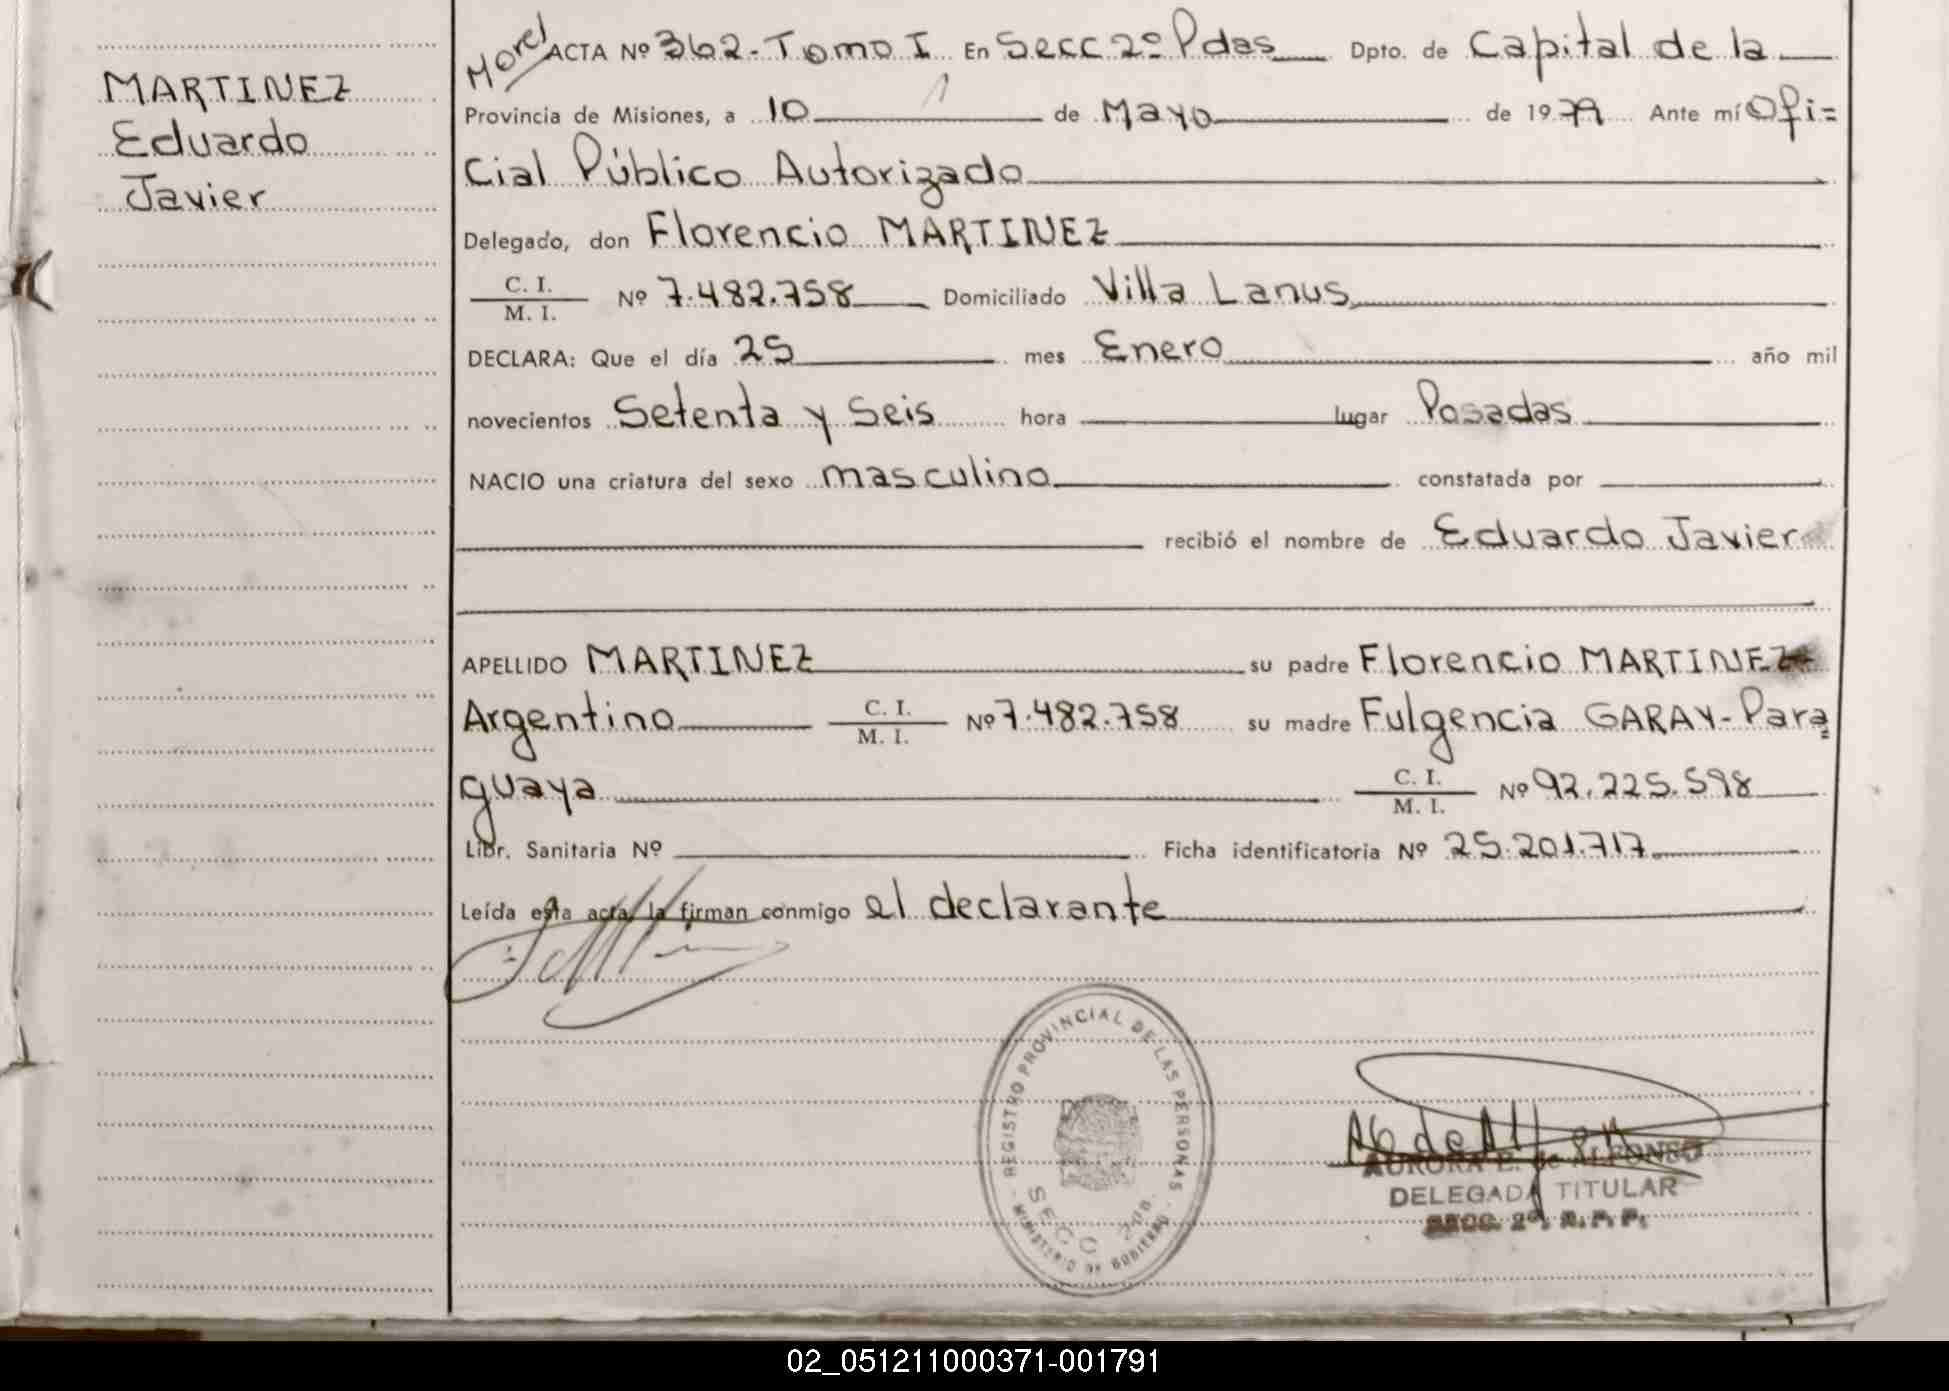 MARTINEZ
Eduardo
Javier
Morel
ACTA Nº 362-Tomo I En Secc 2º Pdas Dpto. de Capital de la
Provincia de Misiones, a 10 de Mayo de 1979 Ante mí Ofi=
cial Público Autorizado
Delegado, don Florencio MARTINEZ
C. I.
M. I. Nº 7.482.758 Domiciliado Villa Lanus
DECLARA: Que el día 25 mes Enero año mil
novecientos Setenta y Seis hora lugar Posadas
NACIO una criatura del sexo masculino constatada por
recibió el nombre de Eduardo Javier
APELLIDO MARTINEZ su padre Florencio MARTINEZ
Argentino C. I. M. I. Nº 7.482.758 su madre Fulgencia GARAY-Para=
guaya C. I. M. I. Nº 92.225.598
Libr. Sanitaria Nº Ficha identificatoria Nº 25.201.717
Leída esta acta, la firman conmigo el declarante
REGISTRO PROVINCIAL DE LAS PERSONAS
SECC 2da.
MINISTERIO DE GOBIERNO
AURORA E. de ALFONSO
DELEGADA TITULAR
SECC. 2ª. R. P. P.
02_051211000371-001791